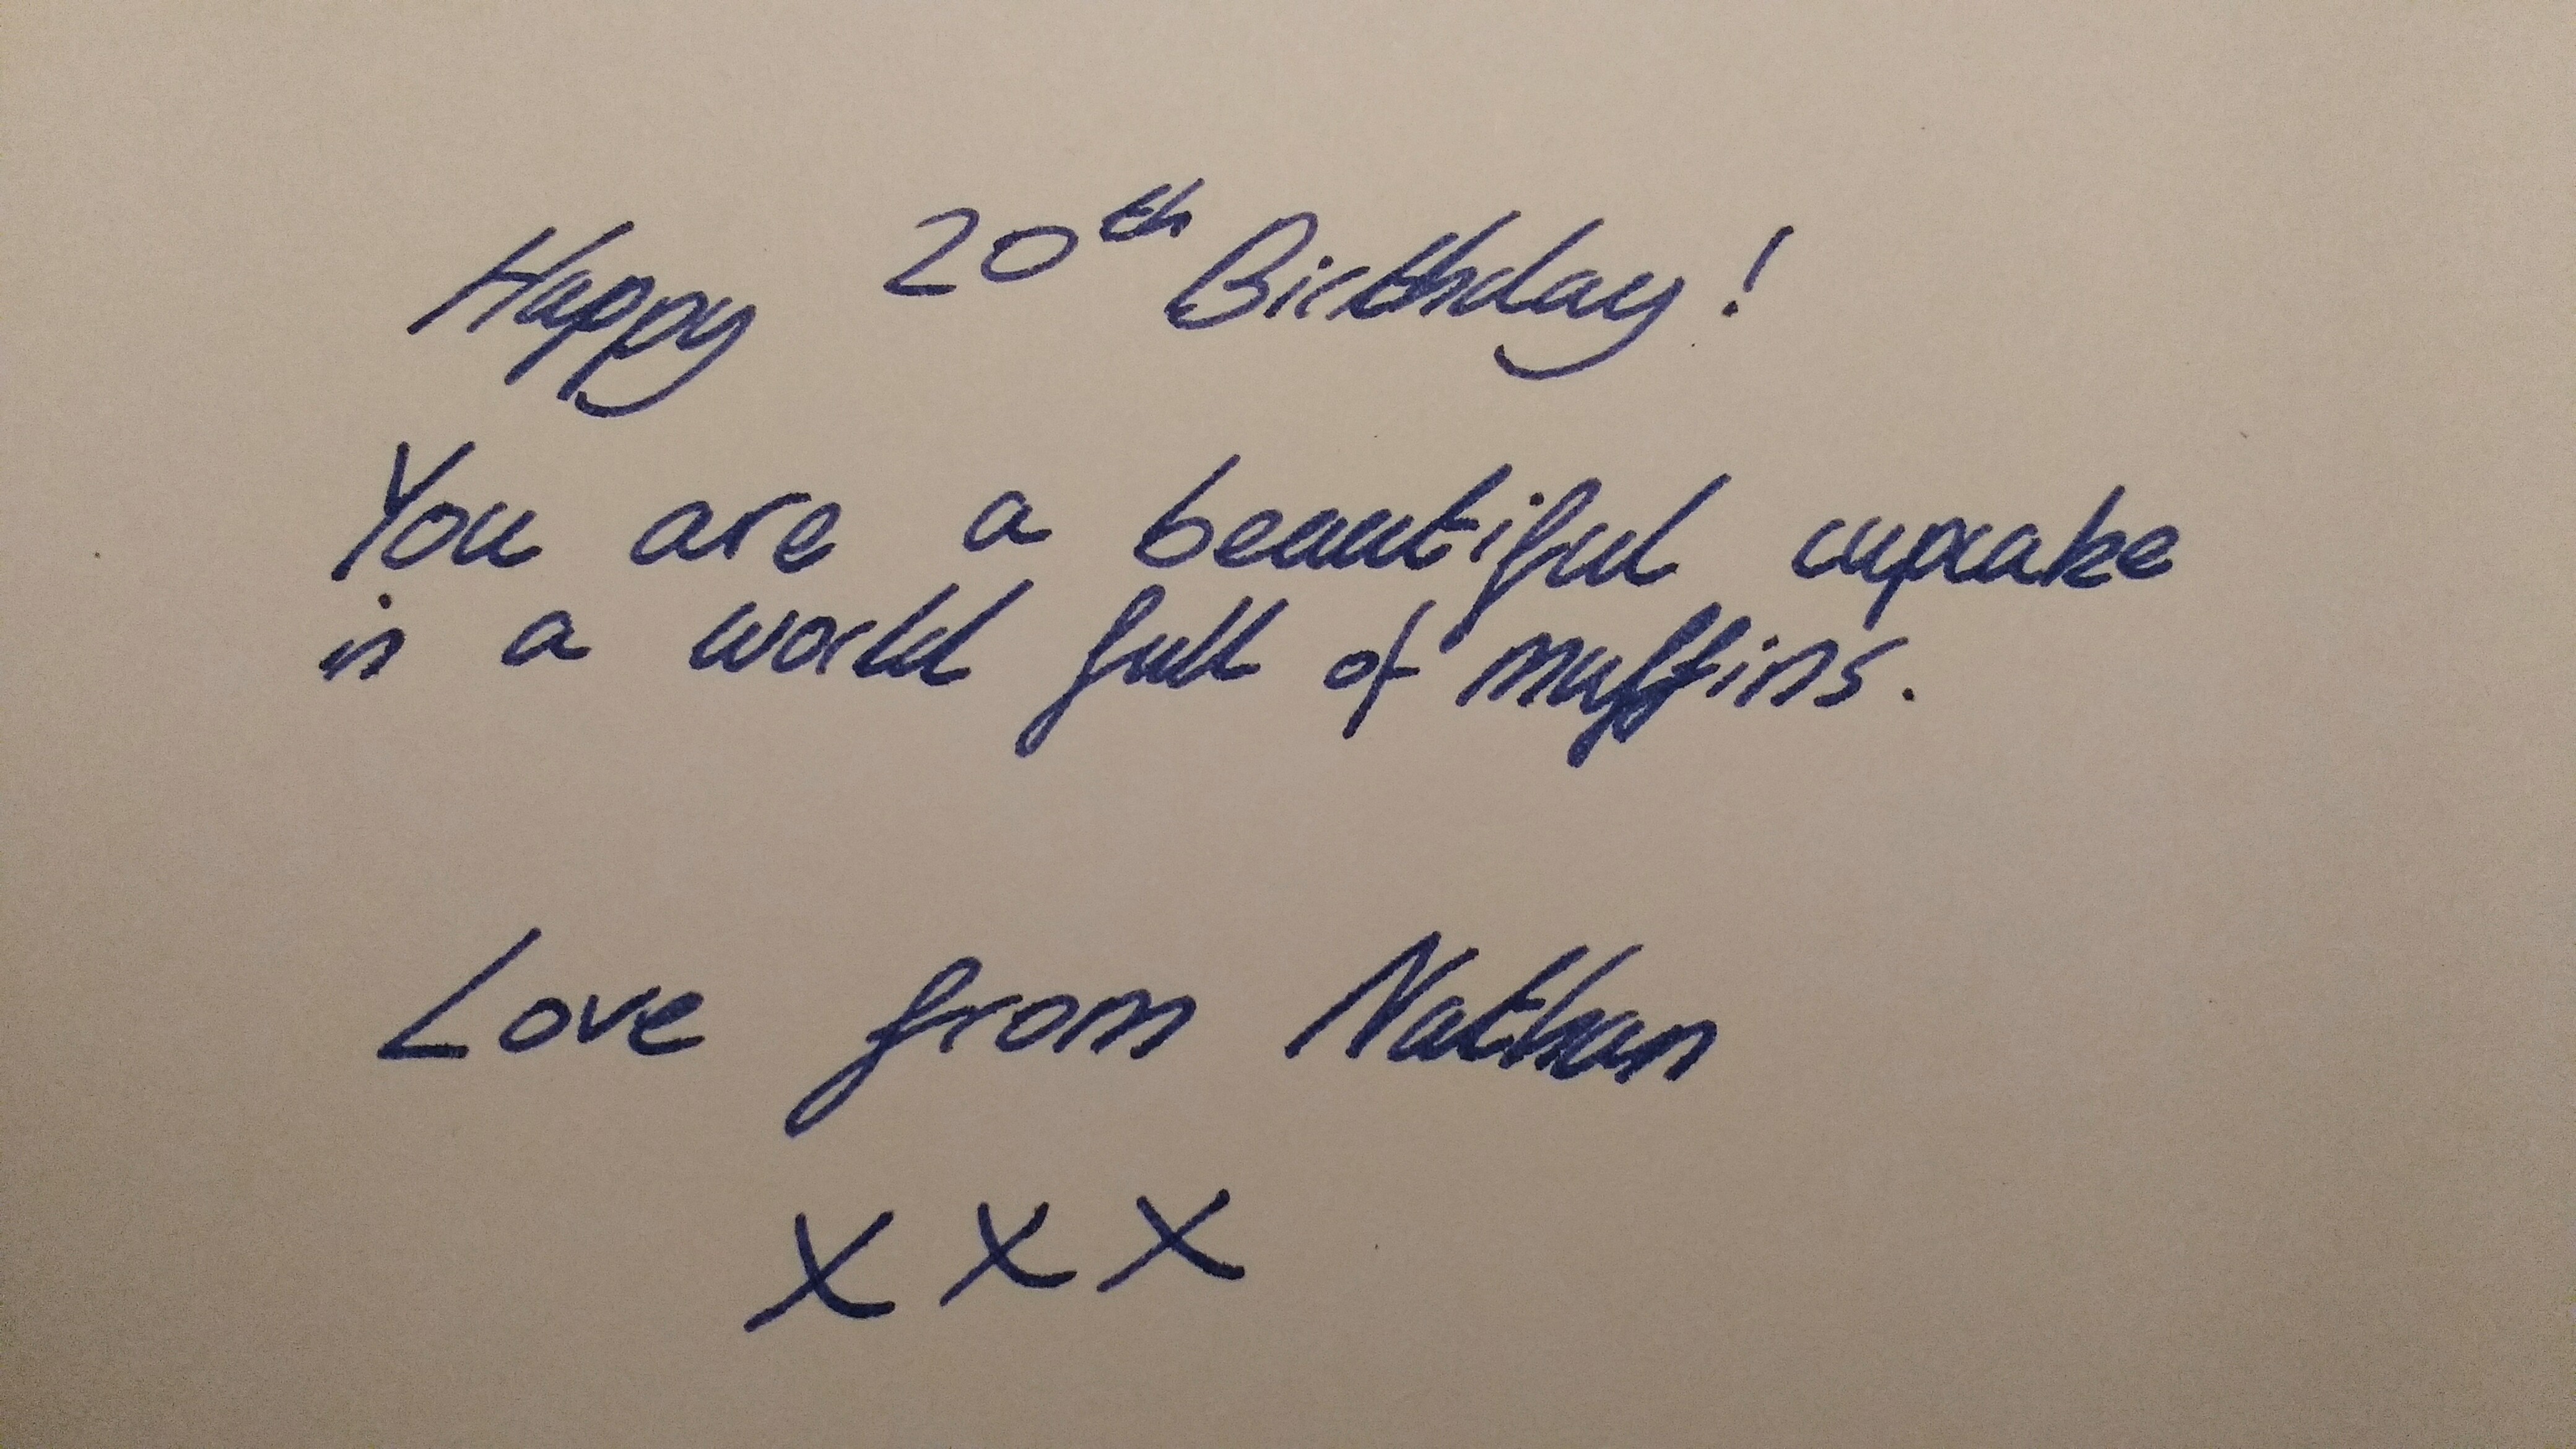 Happy 20th Birthday!
You are a beautiful cupcake
in a world full of muffins.
Love from Nathan
x x x